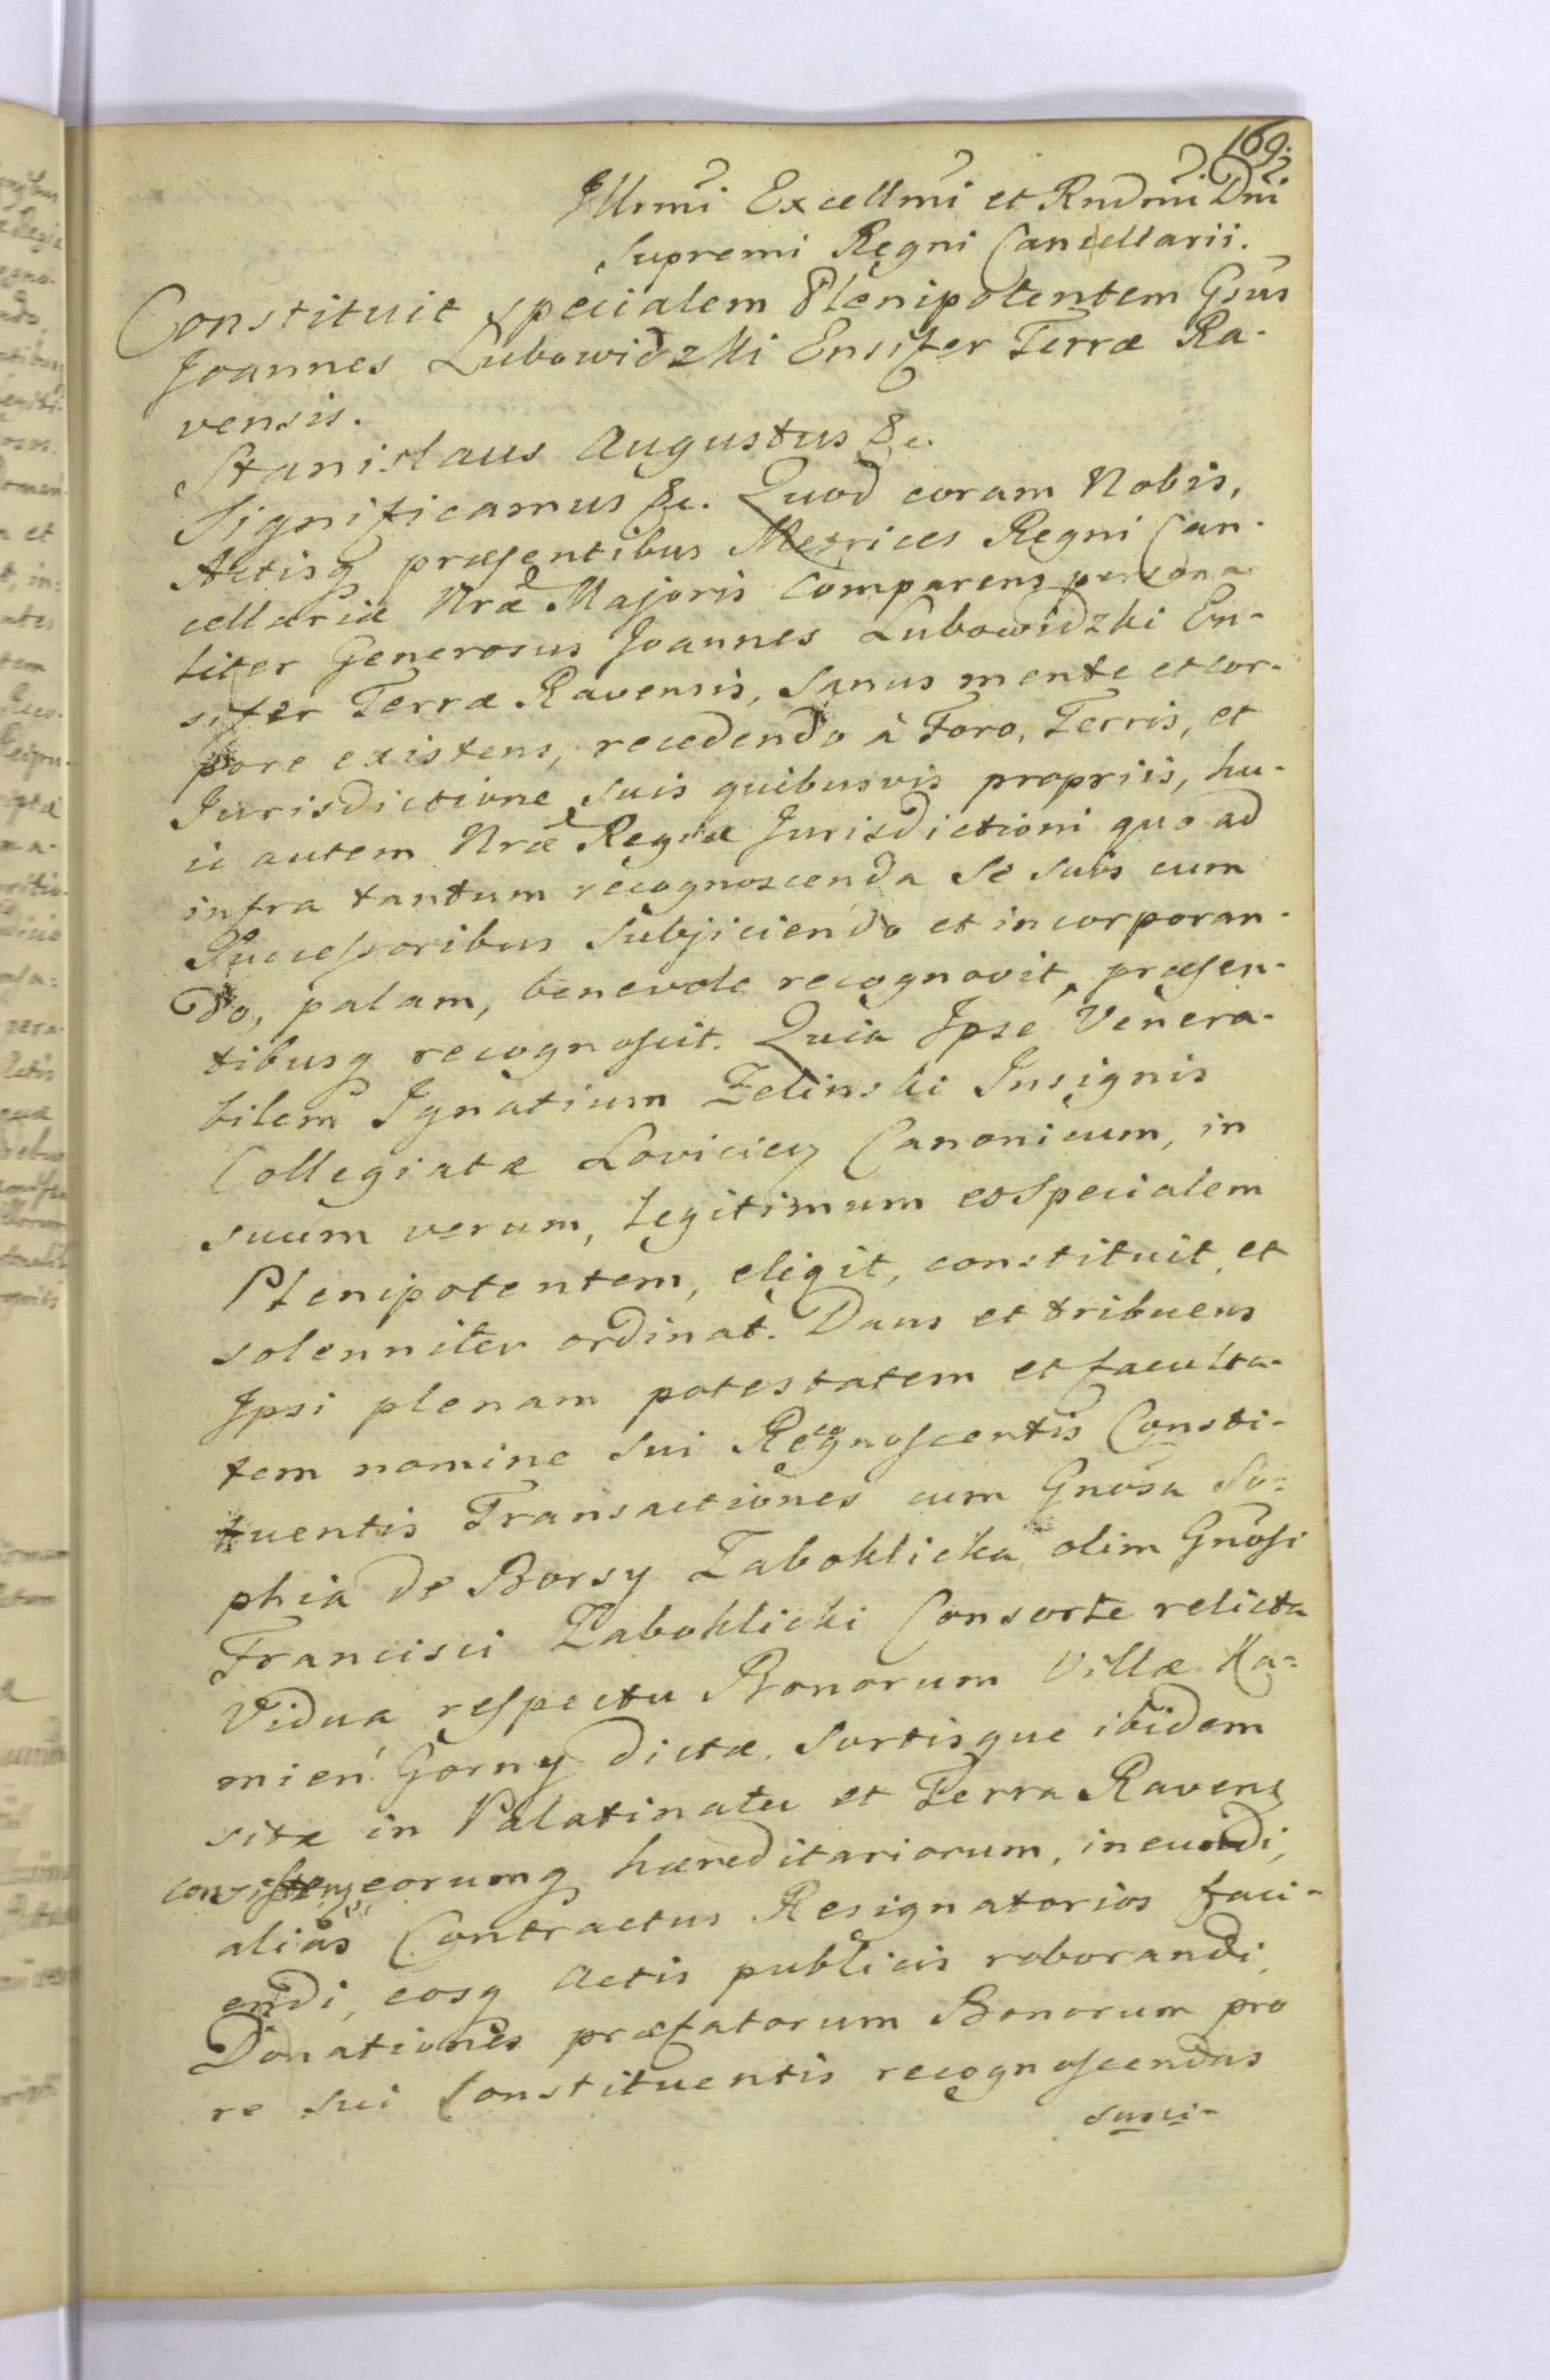 169.
Illrmi Excellmi et Rndmi Dni
Supremi Regni Cancellarii.
Constituit specialem Plenipotentem Gsus
Joannes Lubowidzki Ensifer Terræ Ra-
vensis.
Stanislaus Augustus &c.
Significamus &c. Quod coram Nobis,
Actisq præsentibus Metrices Regni Can-
cellariæ Nræ Majoris Comparens persona-
liter Generosus Joannes Lubowidzki En-
sifer Terræ Ravensis, Sanus mente et cor-
pore existens, recedendo à Foro, Terris, et
Jurisdictione suis quibusvis propriis, hu-
ic autem Nræ Regiæ Jurisdictioni quo ad
infra tantum recognoscenda Se suis cum
Successoribus Subjiciendo et incorporan-
do, palam, benevole recognovit, præsen-
tibusq recognoscit. Quia Ipse Venera-
bilem Ignatium Zelinski Insignis
Collegiatæ Lovicien Canonicum, in
suum verum, legitimum et Specialem
Plenipotentem, eligit, constituit, et
solenniter ordinat. Dans et tribuens
Ipsi plenam potestatem et faculta-
tem nomine sui Recognoscentis Consti-
tuentis Transactiones cum Gnosa So-
phia de Borsy Zaboklicka olim Gnosi
Francisci Zaboklicki Consorte relicta
Vidua respectu Bonorum Villæ Ka-
mień Gorny dictæ, Sortisque ibidem
sitæ in Palatinatu et Terra Ravens
consisten, eorumq hæreditariorum, ineundi,
alias Contractus Resignatorios faci-
endi, eosq Actis publicis roborandi,
Donationes præfatorum Bonorum pro
re sui Constituentis recognoscendas
susci-